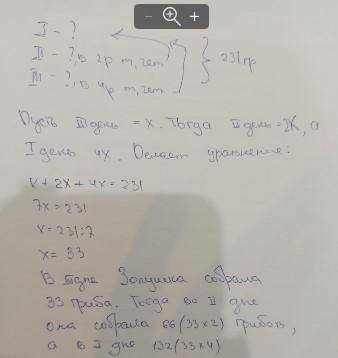 I - ?
II - ?, в 2р m, чем
III - ?, в 4р m, чем
} 231 гр
Пусть III день = x. Тогда II день = 2x, а
I день 4x. Делаем уравнение:
x + 2x + 4x = 231
7x = 231
x = 231:7
x = 33
В III дне Золушка собрала
33 гриба. Тогда во II дне
она собрала 66 (33×2) грибов,
а в I дне 132 (33×4)